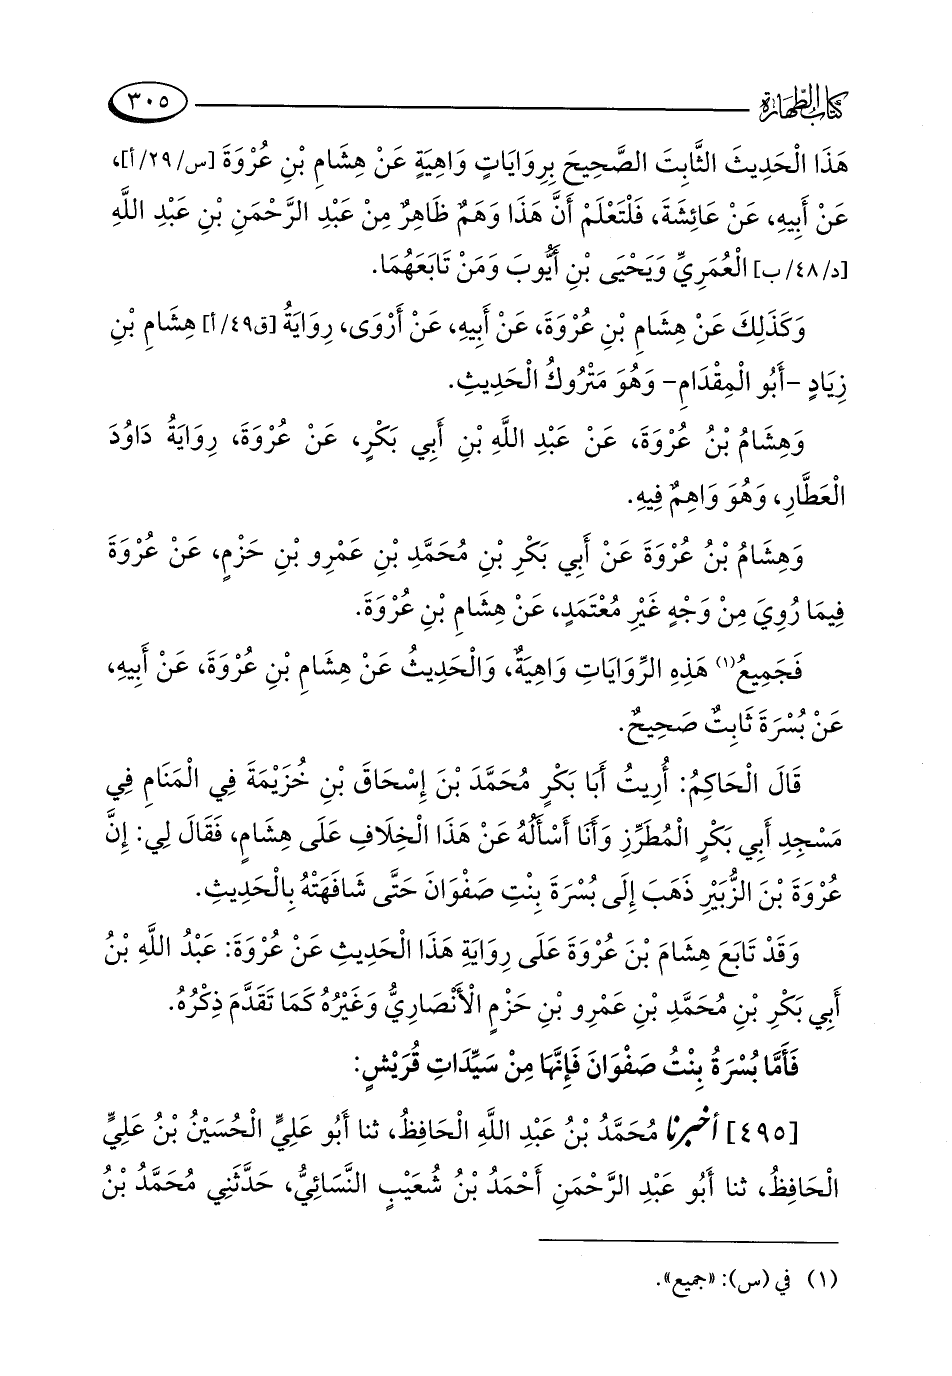 كتاب الطهارة
٣٠٥
هَذَا الْحَدِيثَ الثَّابِتَ الصَّحِيحَ بِرِوَايَاتٍ وَاهِيَةٍ عَنْ هِشَامِ بْنِ عُرْوَةَ [س/٢٩/أ]،
عَنْ أَبِيهِ، عَنْ عَائِشَةَ، فَلْتَعْلَمْ أَنَّ هَذَا وَهَمٌ ظَاهِرٌ مِنْ عَبْدِ الرَّحْمَنِ بْنِ عَبْدِ اللَّهِ
[د/٤٨/ب] الْعُمَرِيِّ وَيَحْيَى بْنِ أَيُّوبَ وَمَنْ تَابَعَهُمَا.
وَكَذَلِكَ عَنْ هِشَامِ بْنِ عُرْوَةَ، عَنْ أَبِيهِ، عَنْ أَرْوَى، رِوَايَةُ [ق٤٩/أ] هِشَامِ بْنِ
زِيَادٍ -أَبُو الْمِقْدَامِ- وَهُوَ مَتْرُوكُ الْحَدِيثِ.
وَهِشَامُ بْنُ عُرْوَةَ، عَنْ عَبْدِ اللَّهِ بْنِ أَبِي بَكْرٍ، عَنْ عُرْوَةَ، رِوَايَةُ دَاوُدَ
الْعَطَّارِ، وَهُوَ وَاهِمٌ فِيهِ.
وَهِشَامُ بْنُ عُرْوَةَ عَنْ أَبِي بَكْرِ بْنِ مُحَمَّدِ بْنِ عَمْرِو بْنِ حَزْمٍ، عَنْ عُرْوَةَ
فِيمَا رُوِيَ مِنْ وَجْهٍ غَيْرِ مُعْتَمَدٍ، عَنْ هِشَامِ بْنِ عُرْوَةَ.
فَجَمِيعُ(١) هَذِهِ الرِّوَايَاتِ وَاهِيَةٌ، وَالْحَدِيثُ عَنْ هِشَامِ بْنِ عُرْوَةَ، عَنْ أَبِيهِ،
عَنْ بُسْرَةَ ثَابِتٌ صَحِيحٌ.
قَالَ الْحَاكِمُ: أُرِيتُ أَبَا بَكْرٍ مُحَمَّدَ بْنَ إِسْحَاقَ بْنِ خُزَيْمَةَ فِي الْمَنَامِ فِي
مَسْجِدِ أَبِي بَكْرٍ الْمُطَرِّزِ وَأَنَا أَسْأَلُهُ عَنْ هَذَا الْخِلَافِ عَلَى هِشَامٍ، فَقَالَ لِي: إِنَّ
عُرْوَةَ بْنَ الزُّبَيْرِ ذَهَبَ إِلَى بُسْرَةَ بِنْتِ صَفْوَانَ حَتَّى شَافَهَتْهُ بِالْحَدِيثِ.
وَقَدْ تَابَعَ هِشَامَ بْنَ عُرْوَةَ عَلَى رِوَايَةِ هَذَا الْحَدِيثِ عَنْ عُرْوَةَ: عَبْدُ اللَّهِ بْنُ
أَبِي بَكْرِ بْنِ مُحَمَّدِ بْنِ عَمْرِو بْنِ حَزْمٍ الْأَنْصَارِيُّ وَغَيْرُهُ كَمَا تَقَدَّمَ ذِكْرُهُ.
فَأَمَّا بُسْرَةُ بِنْتُ صَفْوَانَ فَإِنَّهَا مِنْ سَيِّدَاتِ قُرَيْشٍ:
[٤٩٥] أخبرنا مُحَمَّدُ بْنُ عَبْدِ اللَّهِ الْحَافِظُ، ثنا أَبُو عَلِيٍّ الْحُسَيْنُ بْنُ عَلِيٍّ
الْحَافِظُ، ثنا أَبُو عَبْدِ الرَّحْمَنِ أَحْمَدُ بْنُ شُعَيْبٍ النَّسَائِيُّ، حَدَّثَنِي مُحَمَّدُ بْنُ
(١) في (س): «جميع».